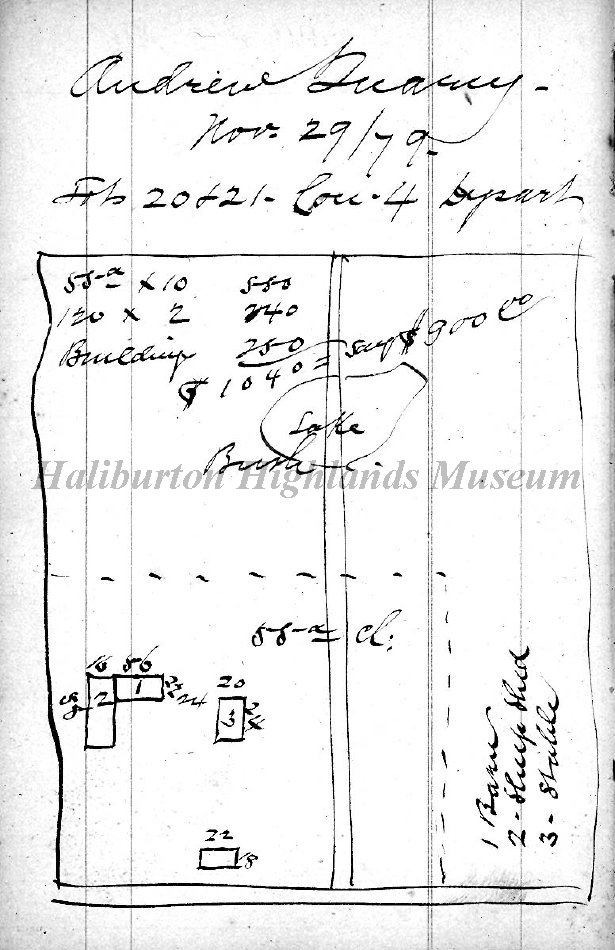 Andrew Kearney -
Nov. 29/79.
Lots 20 & 21 - Con. 4 Dysart
55 a x 10 550
120 x 2 240
Building 250
$ 1040 = say $900 00
Lake
Bush
Haliburton Highlands Museum
55 a cl:
16 56
1
2
24
20
3
24
22
18
1 Barn
2 - Sheep Shed
3 - Stable